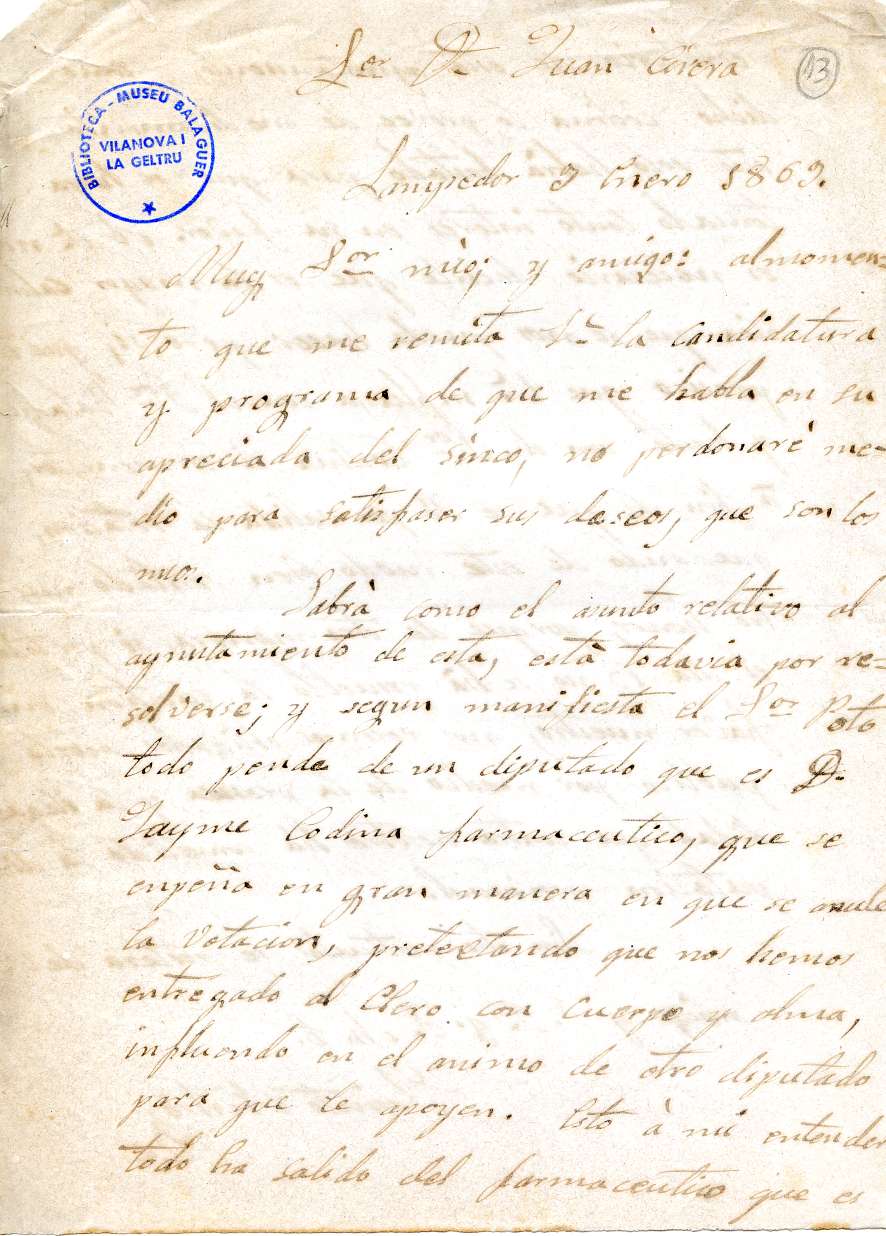 Sor Dn Juan Corera
13
BIBLIOTECA - MUSEU BALAGUER
VILANOVA I
LA GELTRU
Sampedor 9 Enero 1869.
Muy Sor mio; y amigo: al momen=
to que me remita V. la candidatura
y programa de que me habla en su
apreciada del sinco, no perdonaré me=
dio para satisfaser sus deseos, que son los
mios.
Sabrà como el asunto relativo al
ayuntamiento de esta, està todavia por re=
solverse; y segun manifiesta el Sor
todo pende de un diputado que es D.
Jayme Codina farmaceutico, que se
enpeña en gran manera en que se anule
la votacion, pretextando que nos hemos
entregado al Clero con cuerpo y alma,
influendo en el animo de otro diputado
para que le apoyen. Esto à mi entender
todo ha salido del farmaceutico que es